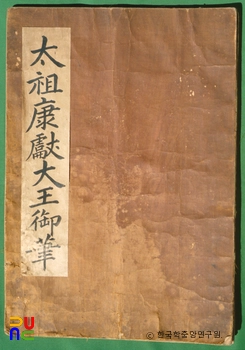 太祖康獻大王御筆
© 한국학중앙연구원